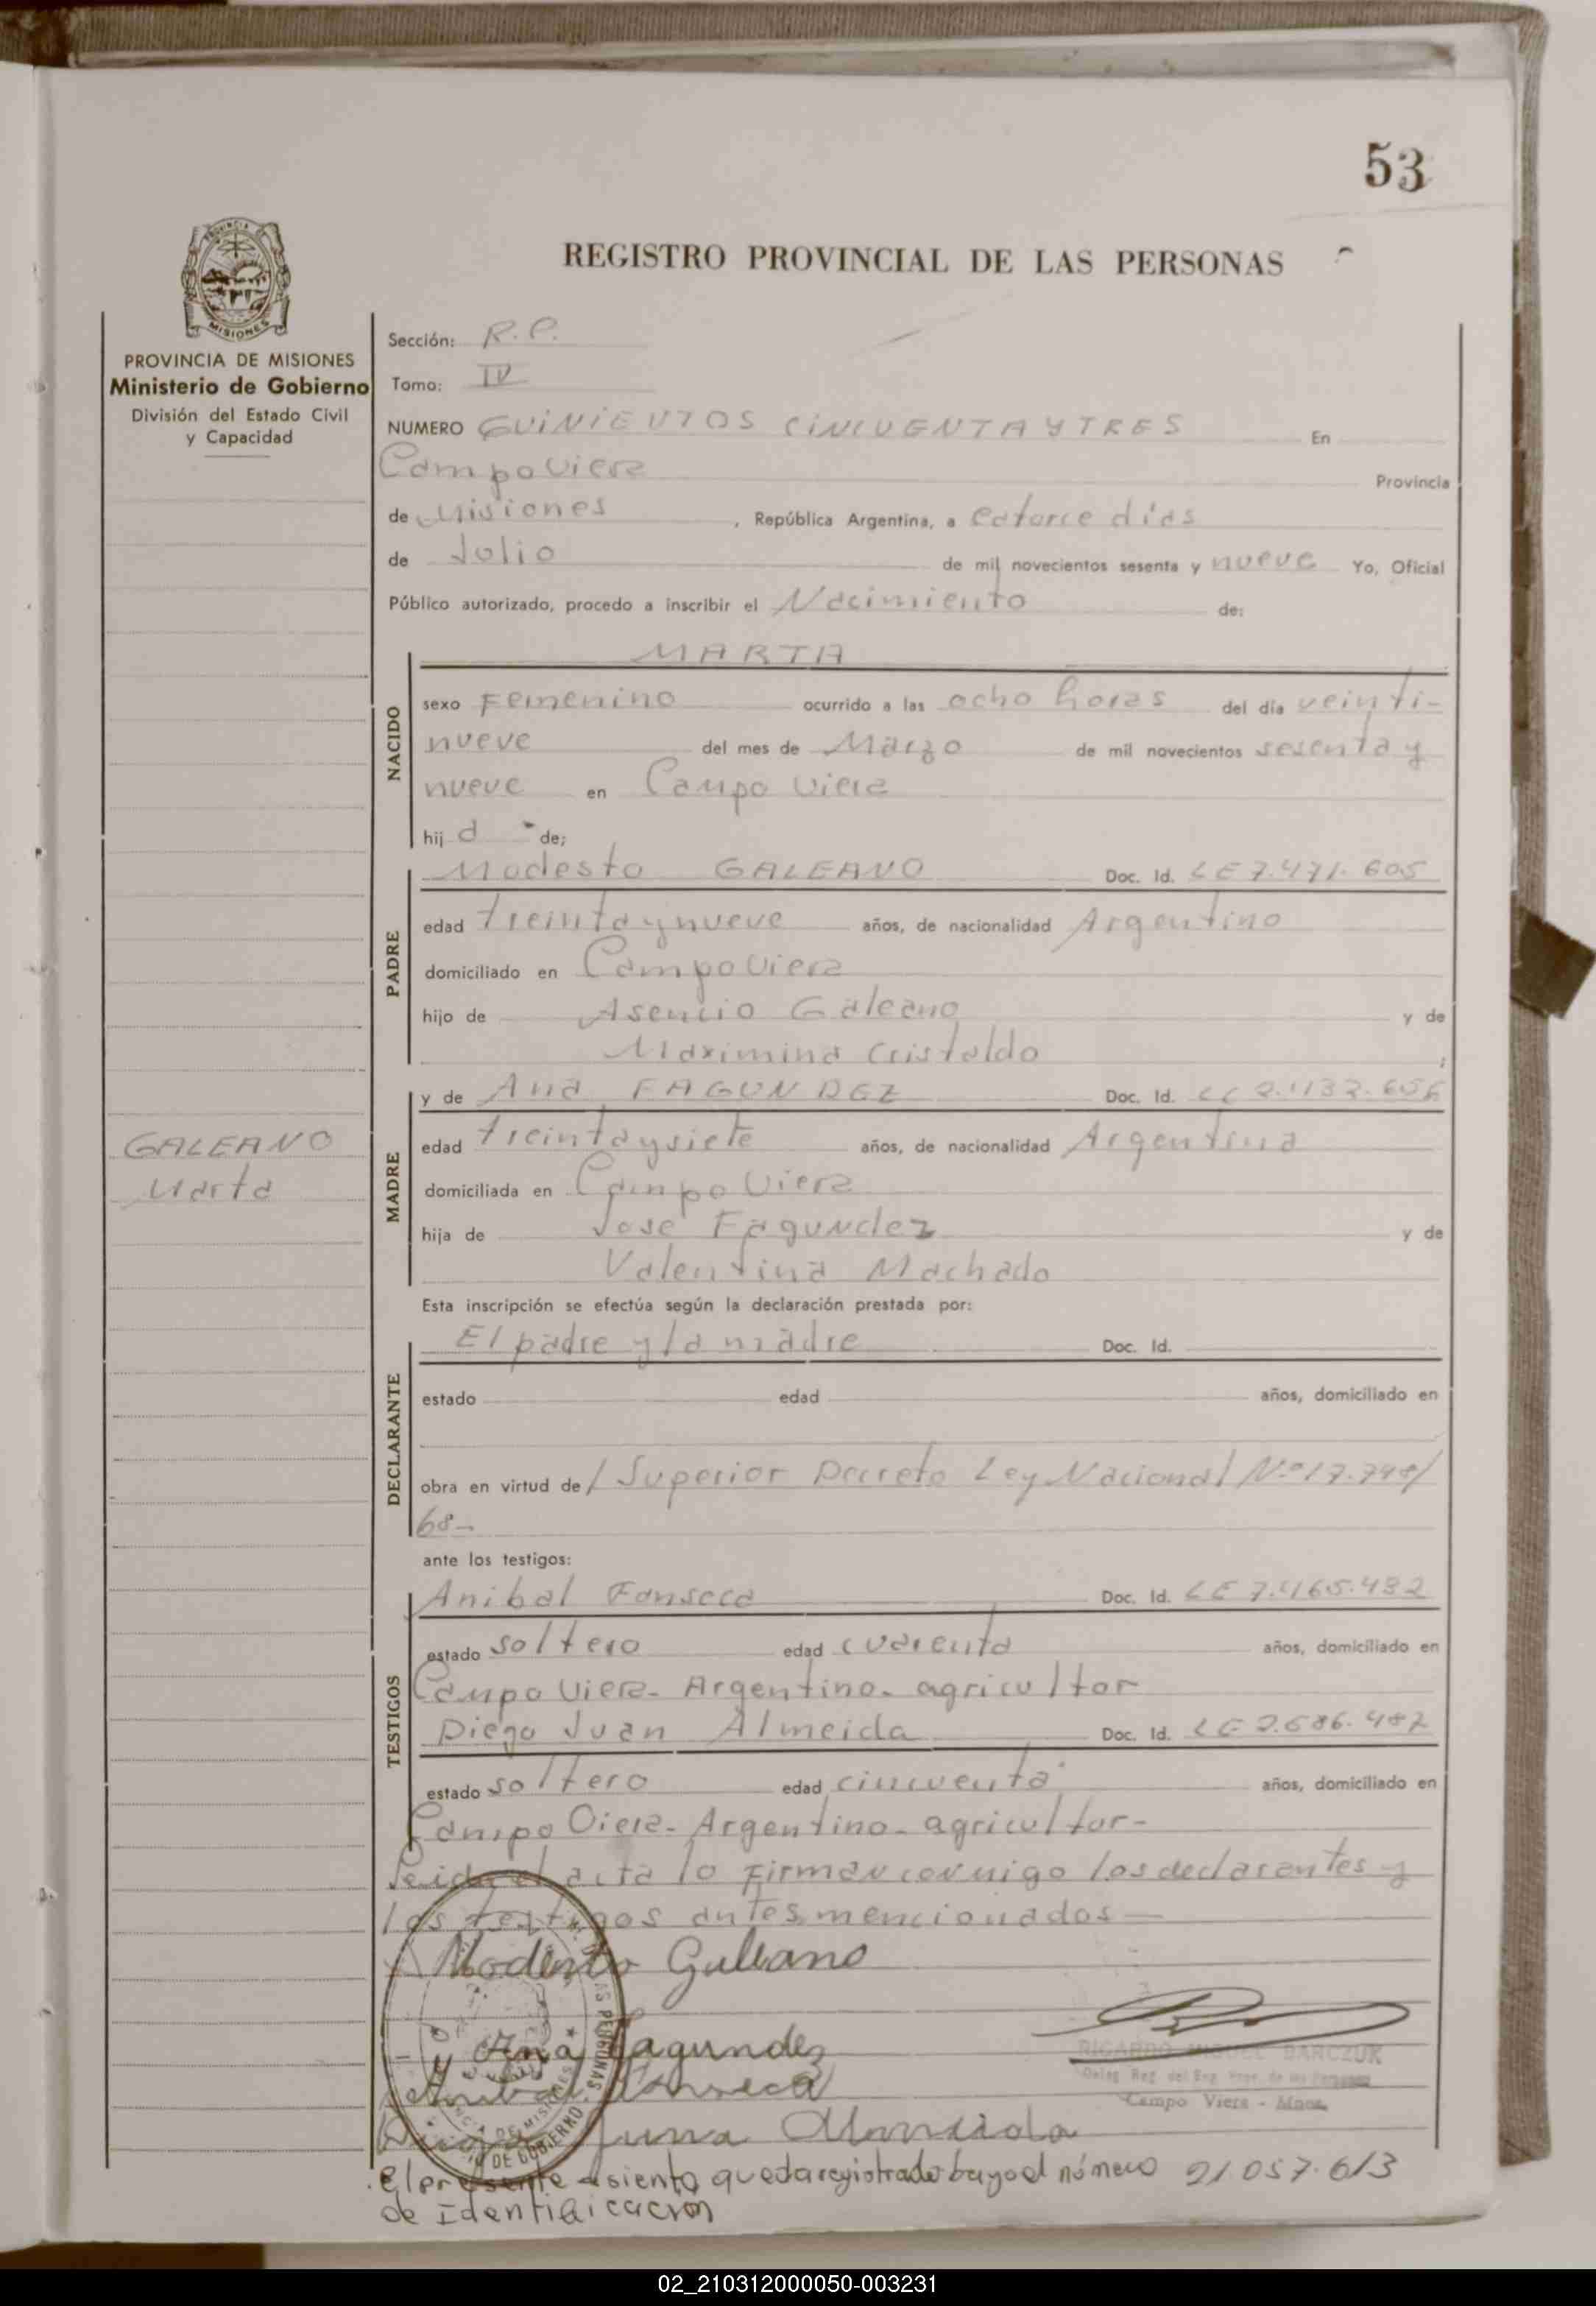 53
REGISTRO PROVINCIAL DE LAS PERSONAS
MISIONES
PROVINCIA DE MISIONES
Ministerio de Gobierno
División del Estado Civil
y Capacidad
Sección: R.P.
Tomo: IV
NUMERO QUINIENTOS CINCUENTA Y TRES En
Campo Viera Provincia
de Misiones, República Argentina, a catorce dias
de Julio de mil novecientos sesenta y nueve Yo, Oficial
Público autorizado, procedo a inscribir el Nacimiento de:
MARTA
NACIDO
sexo Femenino ocurrido a las ocho horas del día veinti-
nueve del mes de Marzo de mil novecientos sesenta y
nueve en Campo Viera
hij a de;
Modesto GALEANO Doc. Id. LE 7.471.605
PADRE
edad treinta y nueve años, de nacionalidad Argentino
domiciliado en Campo Viera
hijo de Asencio Galeano y de
Maximina Cristaldo
y de Ana FAGUNDEZ Doc. Id. LC
GALEANO
Marta
MADRE
edad treinta y siete años, de nacionalidad Argentina
domiciliada en Campo Viera
hija de José Fagundez y de
Valentina Machado
Esta inscripción se efectúa según la declaración prestada por:
El padre y la madre Doc. Id.
DECLARANTE
estado edad años, domiciliado en
obra en virtud de / Superior Decreto Ley Nacional N.º 17.798/
68-
ante los testigos:
Anibal Fonseca Doc. Id. LE 7.465.432
TESTIGOS
estado soltero edad cuarenta años, domiciliado en
Campo Viera- Argentino- agricultor
Diego Juan Almeida Doc. Id. LE 2.686.487
estado soltero edad cincuenta años, domiciliado en
Campo Viera- Argentino- agricultor-
Leida el acta lo firman conmigo los declarantes y
los testigos antes mencionados-
Modesto Galeano
Ana Fagundez
Anibal Fonseca
RICARDO MIGUEL BARCZUK
Campo Viera - Mnes.
El presente asiento queda registrado bajo el número 21 057.613
de Identificacion
02_210312000050-003231